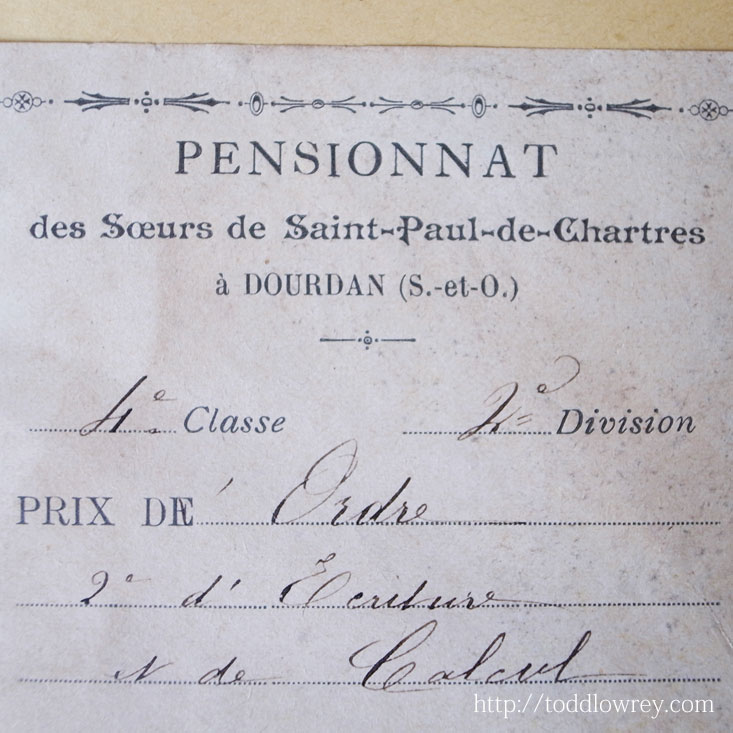 PENSIONNAT
des Sœurs de Saint-Paul-de-Chartres
à DOURDAN (S.-et-O.)
4e Classe 2e Division
PRIX D' Ordre
2e d' Ecriture
de Calcul
http://toddlowrey.com/